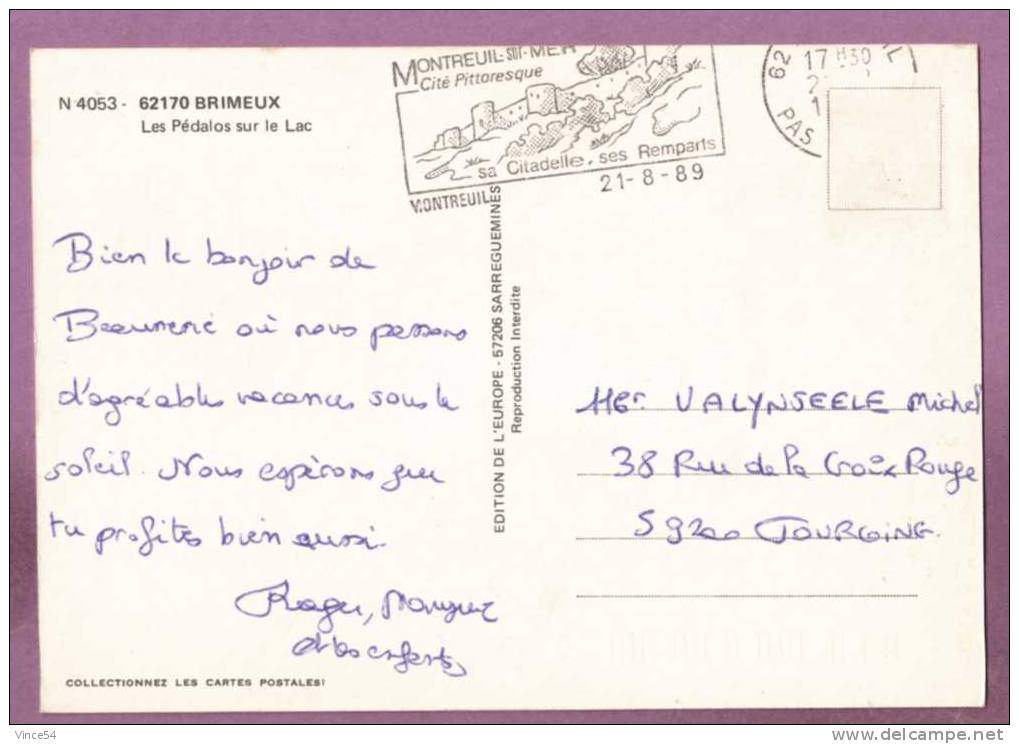 N 4053 - 62170 BRIMEUX
Les Pédalos sur le Lac
MONTREUIL-SUR-MER
Cité Pittoresque
sa Citadelle, ses Remparts
MONTREUIL
21-8-89
62
17 H30
PAS
Bien le bonjour de
Beaumerie où nous passons
d'agréables vacances sous le
soleil. Nous espérons que
tu profites bien aussi.
Roger,
et les enfants
COLLECTIONNEZ LES CARTES POSTALES!
EDITION DE L'EUROPE - 57206 SARREGUEMINES
Reproduction Interdite
VALYNSEELE Michel
38 Rue de la Croix Rouge
59200 TOURCOING.
Vince54
http://www.delcampe.net